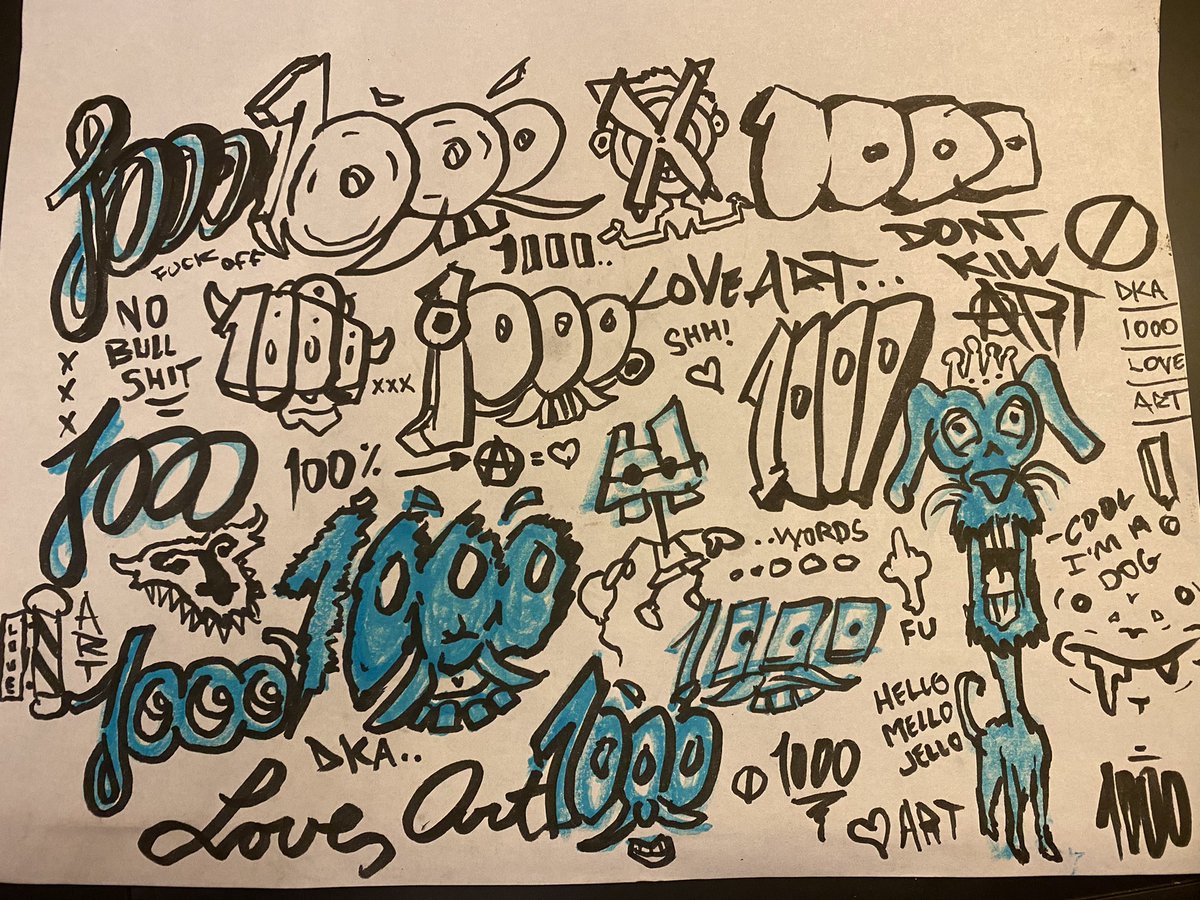 1000
1000
X
1000
FUCK OFF
1000..
DONT
KILL
ART
NO
BULL
SHIT
X
X
X
1000
XXX
1000
LOVE ART...
SHH!
1000
DKA
1000
LOVE
ART
1000
100% → Ⓐ = ♡
1000
..WORDS
FU
-COOL
I'M A
DOG
ART
1000
1000
DKA..
Loves Art
1000
1000
HELLO
MELLO
JELLO
♡ ART
1000